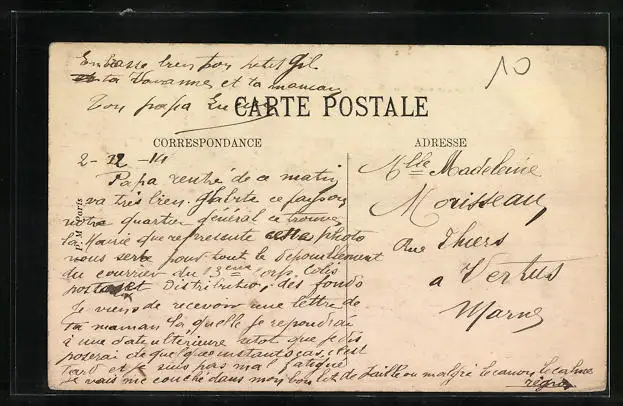 Embrasse bien ton petit Gil
ta Vovonne et ta maman
Ton papa
10
CARTE POSTALE
CORRESPONDANCE
ADRESSE
2-12-14
Papa rentré de ce matin
va très bien. J'habite ce pays ou
notre quartier général ce trouve
la Mairie que represente cette photo
nous sert pour tout le depouillement
du courrier du 3eme Corp. Colis
postaux et Distribution des fonds
Je viens de recevoir une lettre de
ta maman la quelle je repondrai
à une date ultérieure sitot que je dis
poserai de quelques instants car c'est
tard et je suis pas mal fatigué
je vais me couché dans mon bon lit de paille ou malgré le canon le calme
règne
Mlle Madeleine
Moisseau
Rue Thiers
a Vertus
Marne